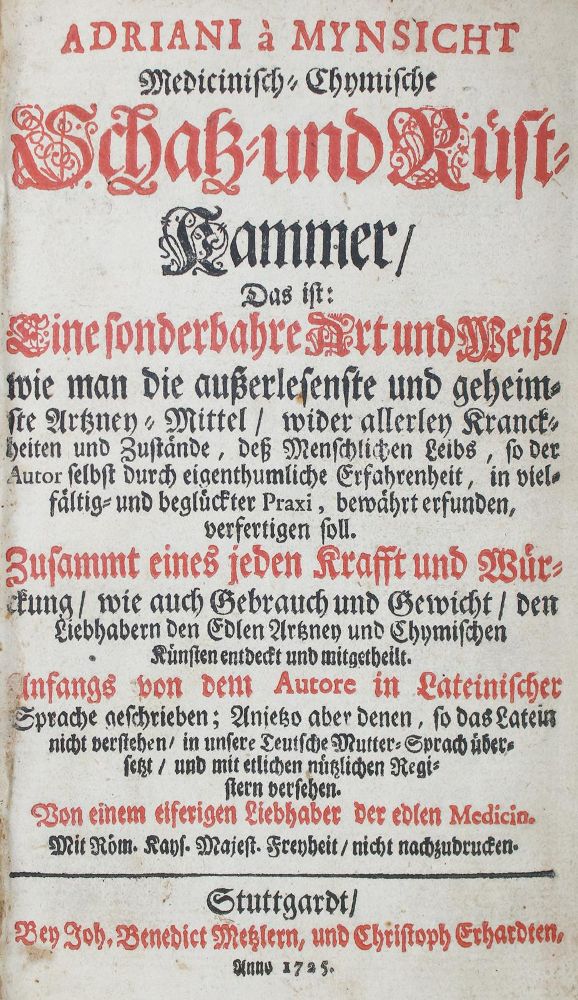 ADRIANI à MYNSICHT
Medicinisch-Chymische
Schatz-und Rüst-
Kammer/
Das ist:
Eine sonderbahre Art und Weiß/
wie man die außerlesenste und geheim-
ste Artzney-Mittel/ wider allerley Kranck-
heiten und Zustände, deß Menschlichen Leibs, so der
Autor selbst durch eigenthumliche Erfahrenheit, in viel-
fältig- und beglückter Praxi, bewährt erfunden,
verfertigen soll.
Zusammt eines jeden Krafft und Wür-
ckung/ wie auch Gebrauch und Gewicht/ den
Liebhabern den Edlen Artzney und Chymischen
Künsten entdeckt und mitgetheilt.
Anfangs von dem Autore in Lateinischer
Sprache geschrieben; Anjetzo aber denen, so das Latein
nicht verstehen/ in unsere Teutsche Mutter-Sprach über-
setzt/ und mit etlichen nützlichen Regi-
stern versehen.
Von einem eiferigen Liebhaber der edlen Medicin.
Mit Röm. Kays. Majest. Freyheit/ nicht nachzudrucken.
Stuttgardt/
Bey Joh. Benedict Metzlern, und Christoph Erhardten,
Anno 1725.